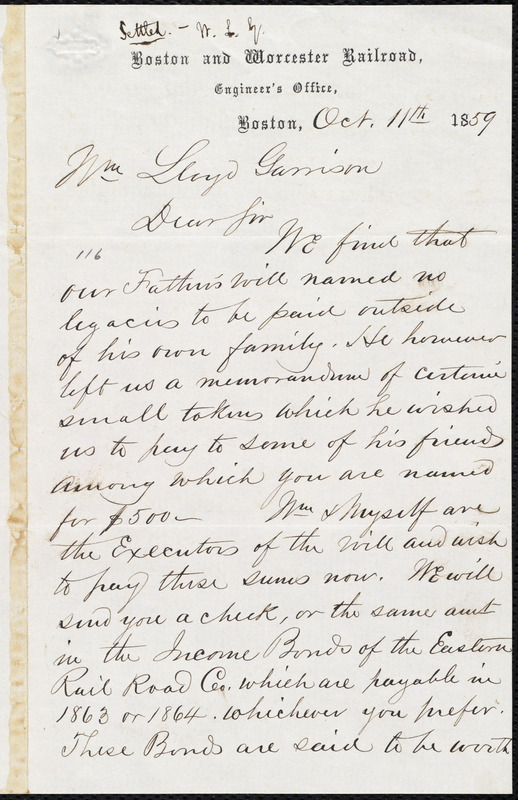 Settled. - W. L. G.
Boston and Worcester Railroad,
Engineer's Office,
Boston, Oct. 11th 1859
Wm Lloyd Garrison
Dear Sir
We find that
116
our Father's will named no
legacies to be paid outside
of his own family. He however
left us a memorandum of certain
small tokens which he wished
us to pay to some of his friends
among which you are named
for $500- Wm & Myself are
the Executors of the will and wish
to pay these sums now. We will
send you a check, or the same amt
in the Income Bonds of the Eastern
Rail Road Co. which are payable in
1863 or 1864. whichever you prefer.
These Bonds are said to be worth